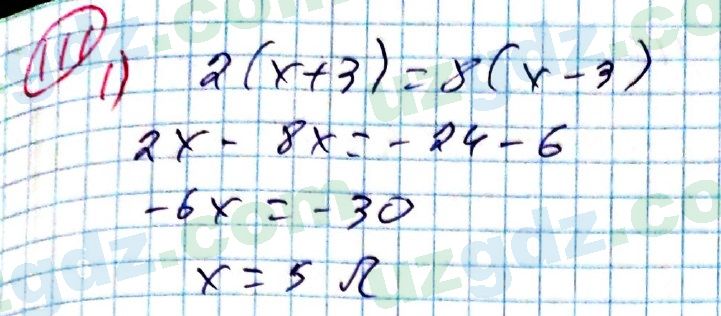 111 1) 2(x+3)=8(x-3)
2x-8x=-24-6
-6x=-30
x=5
uzgdz.com